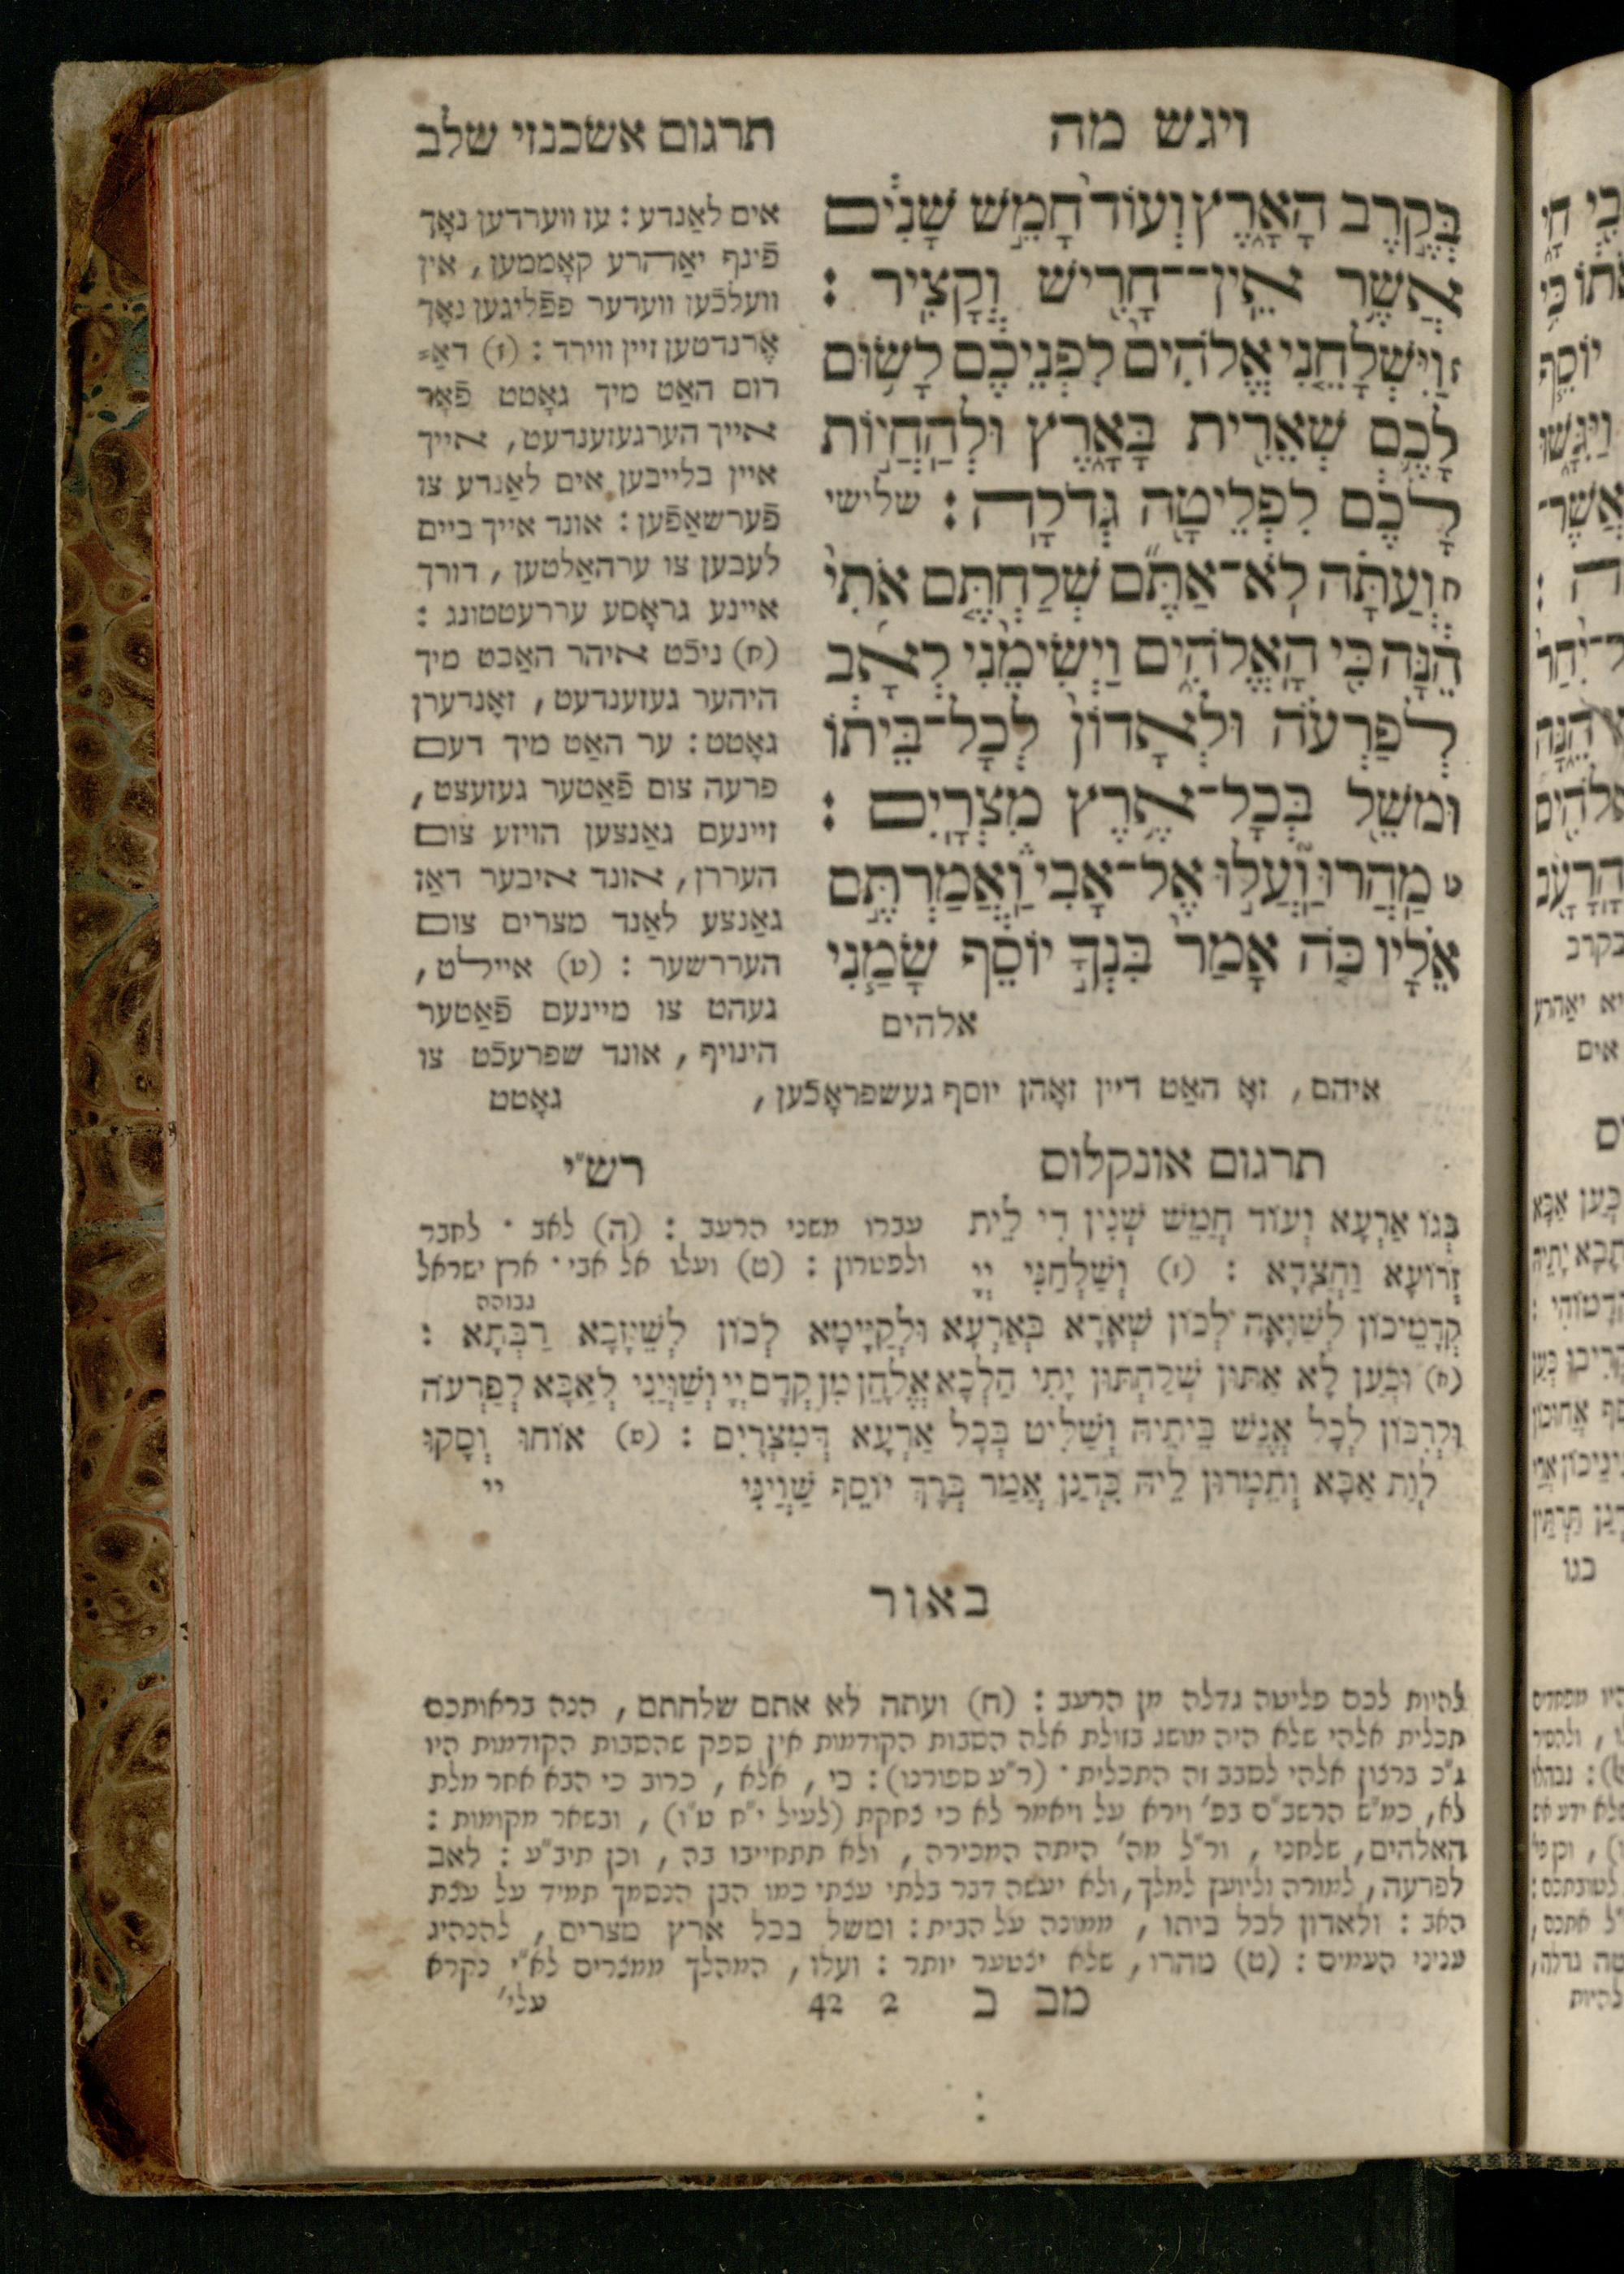 ויגש מה
תרגום אשכנזי שלב
בְּקֶרֶב הָאָרֶץ וְעוֹד חָמֵשׁ שָׁנִים
אֲשֶׁר אֵין־חָרִישׁ וְקָצִיר :
ז וַיִּשְׁלָחֵנִי אֱלֹהִים לִפְנֵיכֶם לָשׂוּם
לָכֶם שְׁאֵרִית בָּאָרֶץ וּלְהַחֲיוֹת
לָכֶם לִפְלֵיטָה גְּדֹלָה : שלישי
ח וְעַתָּה לֹא־אַתֶּם שְׁלַחְתֶּם אֹתִי
הֵנָּה כִּי הָאֱלֹהִים וַיְשִׂימֵנִי לְאָב
לְפַרְעֹה וּלְאָדוֹן לְכָל־בֵּיתוֹ
וּמֹשֵׁל בְּכָל־אֶרֶץ מִצְרָיִם :
ט מַהֲרוּ וַעֲלוּ אֶל־אָבִי וַאֲמַרְתֶּם
אֵלָיו כֹּה אָמַר בִּנְךָ יוֹסֵף שָׂמַנִי
אלהים
אים לאַנדע : עז ווערדען נאָך
פֿינף יאַהרע קאָממען , אין
וועלכֿען וועדער פפֿליגען נאָך
אֶרנדטען זיין ווירד : (ז) דאַ=
רום האַט מיך גאָטט פֿאָר
אייך הערגעזענדעט, אייך
איין בלייבען אים לאַנדע צו
פֿערשאַפֿען : אונד אייך ביים
לעבען צו ערהאַלטען , דורך
איינע גראָסע עררעטטונג :
(ח) ניכֿט איהר האַבט מיך
היהער געזענדעט , זאָנדערן
גאָטט : ער האַט מיך דעם
פרעה צום פֿאַטער געזעצט ,
זיינעם גאַנצען הויזע צום
העררן, אונד איבער דאַז
גאַנצע לאַנד מצרים צום
העררשער : (ט) איילט ,
געהט צו מיינעם פֿאַטער
הינויף , אונד שפרעכֿט צו
איהם, זאָ האַט דיין זאָהן יוסף געשפראָכֿען , גאָטט
תרגום אונקלוס
בְּגוֹ אַרְעָא וְעוֹד חֲמֵשׁ שְׁנִין דִי לֵית
זְרוֹעָא וַחֲצָדָא : (ז) וְשַׁלְחַנִּי יְיָ
רש"י
עברו משני הרעב : (ה) לאב ־ לחבר
ולפטרון : (ט) ועלו אל אבי ־ ארץ ישראל
גבוהה
קֳדָמֵיכוֹן לְשַׁוָּאָה לְכוֹן שְׁאָרָא בְּאַרְעָא וּלְקַיָּימָא לְכוֹן לְשֵׁיזָבָא רַבְּתָא :
(ח) וּכְעַן לָא אַתּוּן שְׁלַחְתּוּן יָתִי הַלְכָא אֱלָהֵן מִן קֳדָם יְיָ וְשַׁוְּיַנִי לְאַבָּא לְפַרְעֹה
וּלְרִבּוֹן לְכָל אֱנָשׁ בֵּיתֵיהּ וְשַׁלִּיט בְּכָל אַרְעָא דְּמִצְרָיִם : (ט) אוֹחוּ וְסָקוּ
לְוַת אַבָּא וְתֵמְרוּן לֵיהּ כִּדְנַן אֲמַר בְּרָךְ יוֹסֵף שַׁוְּיַנִּי יי
באור
להיות לכם פליטה גדלה מן הרעב : (ח) ועתה לא אתם שלחתם , הנה בראותכם
תכלית אלהי שלא היה מושג בזולת אלה הסבות הקודמות אין ספק שהסבות הקודמות היו
ג"כ ברצון אלהי לסבב זה התכלית ־ (ר"ע ספורנו) : כי , אלא , כרוב כי הבא אחר מלת
לא, כמ"ש הרשב"ם בפ' וירא על ויאמר לא כי צחקת (לעיל י"ח ט"ו) , ובשאר מקומות :
האלהים, שלחני , ור"ל מה' היתה המכירה , ולא תתחייבו בה , וכן תיב"ע : לאב
לפרעה, למורה וליועץ למלך, ולא יעשה דבר בלתי עצתי כמו הבן הנסמך תמיד על עצת
האב : ולאדון לכל ביתו , ממונה על הבית : ומשל בכל ארץ מצרים , להנהיג
עניני העמים : (ט) מהרו, שלא יצטער יותר : ועלו , המהלך ממצרים לא"י נקרא
מב ב 2 42 עלי'